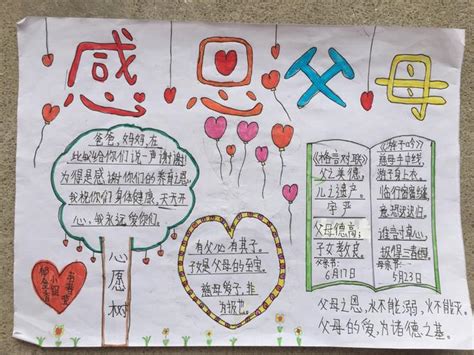 感恩父母
爸爸,妈妈,在
此献给你们说一声谢谢!
为得是感谢你们的养育之恩。
我祝你们身体健康,天天开
心,我永远爱你们。
心愿树
有父必有其子。
子女是父母的至宝。
慈母
《格言对联》
父之美德,
儿之遗产。
字严
父母德高;
子女教良。
父亲节:
6月17日
《游子吟》
慈母手中线,
游子身上衣。
临行密密缝,
意恐迟迟归。
谁言寸草心,
报得三春晖。
母亲节:
5月23日
父母之恩,水不能溺,火不能灭。
父母的爱,为诸德之基。